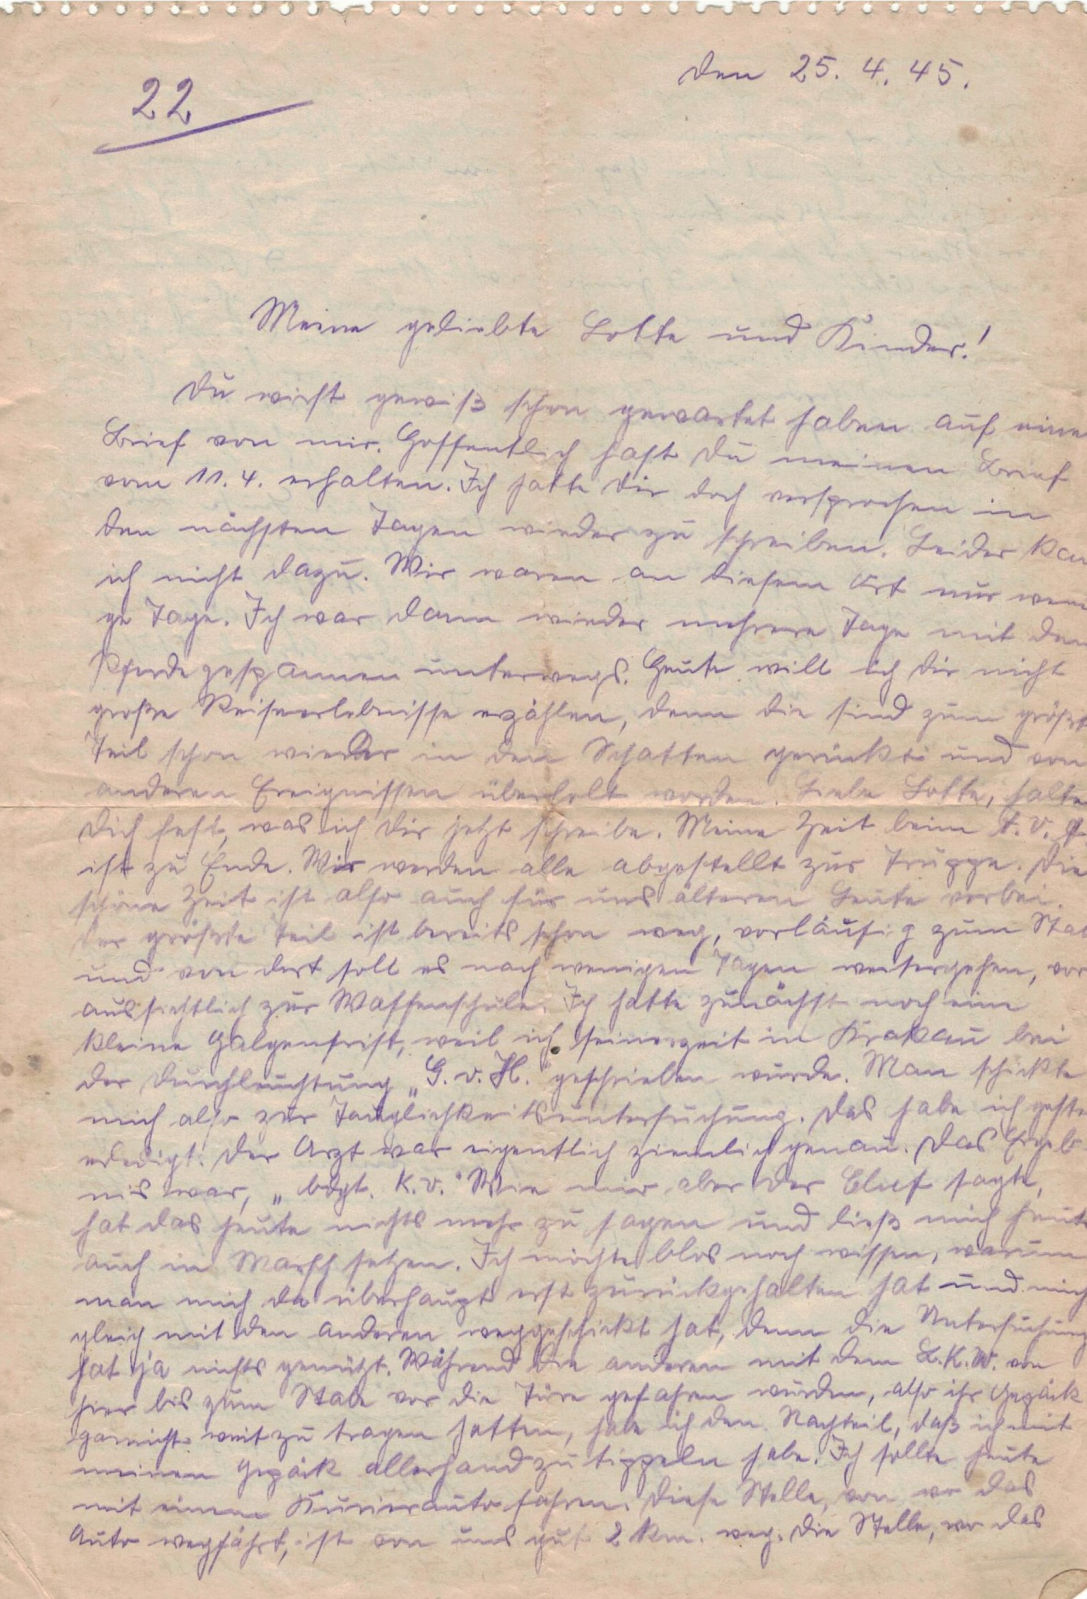 22
den 25. 4. 45.
Meine geliebte Lotte und Kinder!
Du wirst gewiß schon gewartet haben auf eine
Brief von mir. Hoffentlich hast Du meinen Brief
vom 11. 4. erhalten. Ich hatte Dir doch versprochen in
den nächsten Tagen wieder zu schreiben. Leider kam
ich nicht dazu. Wir waren an diesem Ort nur weni
ge Tage. Ich war dann wieder mehrere Tage mit den
Pferdegespannen unterwegs. Heute will ich Dir nicht
große Reiseerlebnisse erzählen, denn die sind zum größt
Teil schon wieder in den Schatten gerückt und von
anderen Ereignissen überholt worden. Liebe Lotte, halte
Dich fest, was ich Dir jetzt schreibe. Meine Zeit beim
ist zu Ende. Wir werden alle abgestellt zur Truppe. Die
schöne Zeit ist also auch für uns älteren Leute vorbei.
Der größte Teil ist bereits schon weg, vorläufig zum Stab
und von dort soll es nach wenigen Tagen weitergehen, vor
aussichtlich zur Waffenschule. Ich hatte zunächst noch eine
kleine Galgenfrist, weil ich seinerzeit in Krakau bei
der Durchleuchtung „G. v. H." geschrieben wurde. Man schickte
mich also zur Tauglichkeitsuntersuchung. Das habe ich geste
erledigt. Der Arzt war eigentlich ziemlich genau. Das Ergeb
nis war, „bdgt. K.v." Wie mir aber der Chef sagte,
hat das heute nichts mehr zu sagen und ließ mich heut
auch in Marsch setzen. Ich möchte blos noch wissen, warum
man mich da überhaupt erst zurückgehalten hat und mich
gleich mit den anderen weggeschickt hat, denn die Untersuchung
hat ja nichts genützt. Während die anderen mit dem L.K.W. von
hier bis zum Stab vor die Türe gefahren wurden, also ihr Gepäck
garnicht weit zu tragen hatten, habe ich den Nachteil, daß ich mit
meinem Gepäck allerhand zu tippeln habe. Ich sollte heute
mit einem Kurierauto fahren. Diese Stelle, von wo das
Auto wegfährt, ist von uns gut 2 km. weg. Die Stelle, wo das